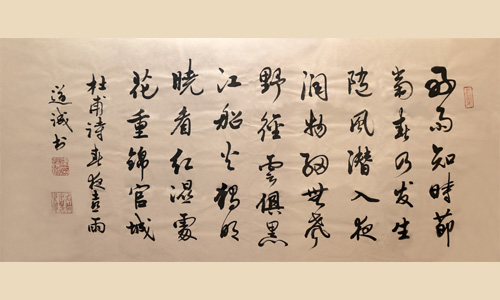 好雨知時節
當春乃发生
随風潛入夜
润物細無聲
野徑雲俱黑
江船火獨明
曉看红濕處
花重錦官城
杜甫诗春夜喜雨
道诚书